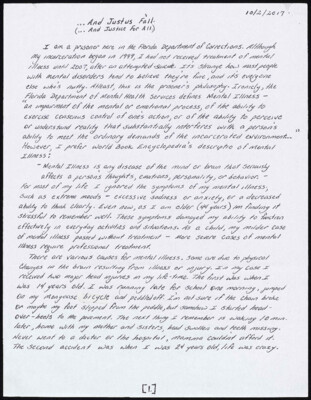 10/2/2017.
...And Justus Fall.
(... And Justice For All)
I am a prisoner here in the Florida Department of Corrections. Although
my incarceration began in 1999, I had not received treatment of mental
illness until 2007, after an attempted suicide. It's strange how most people
with mental disorders tend to believe they're fine, and it's everyone
else who's nutty. Atleast, this is the prisoner's philosophy. Ironicly, the
Florida Department of Mental Health Services defines Mental Illness —
"an impairment of the mental or emotional process, of the ability to
exercise conscious control of one's action, or of the ability to perceive
or understand reality that substantially interferes with a person's
ability to meet the ordinary demands of the incarcerated environment..."
However, I prefer World Book Encyclopedia's description of mental
Illness:
- Mental Illness is any disease of the mind or brain that seriously
affects a person's thoughts, emotions, personality, or behavior. -
For most of my life I ignored the symptoms of my mental illness,
such as extreme moods - excessive sadness or anxiety, or a decreased
ability to think clearly. Even now, as I am older (44 years) I'm finding it
stressful to remember well. These symptoms damaged my ability to function
effectively in everyday activities and situations. As a child, my milder case
of mental illness passed without treatment - more severe cases of mental
illness require professional treatment.
There are various causes for mental illness. Some are due to physical
changes in the brain resulting from illness or injury. In my case I
received two major head injuries in my life-time. The first was when I
was 14 years old. I was running late for school one morning, jumped
on my mongoose bicycle and peddled off. I'm not sure if the chain broke
or maybe my foot slipped from the peddle, but somehow I started head-
over-heels to the pavement. The next thing I remember is waking 30 min.
later, home with my mother and sisters, head swollen and teeth missing.
Never went to a doctor or the hospital, mamma couldn't afford it.
The second accident was when I was 24 years old, life was crazy.
[1]